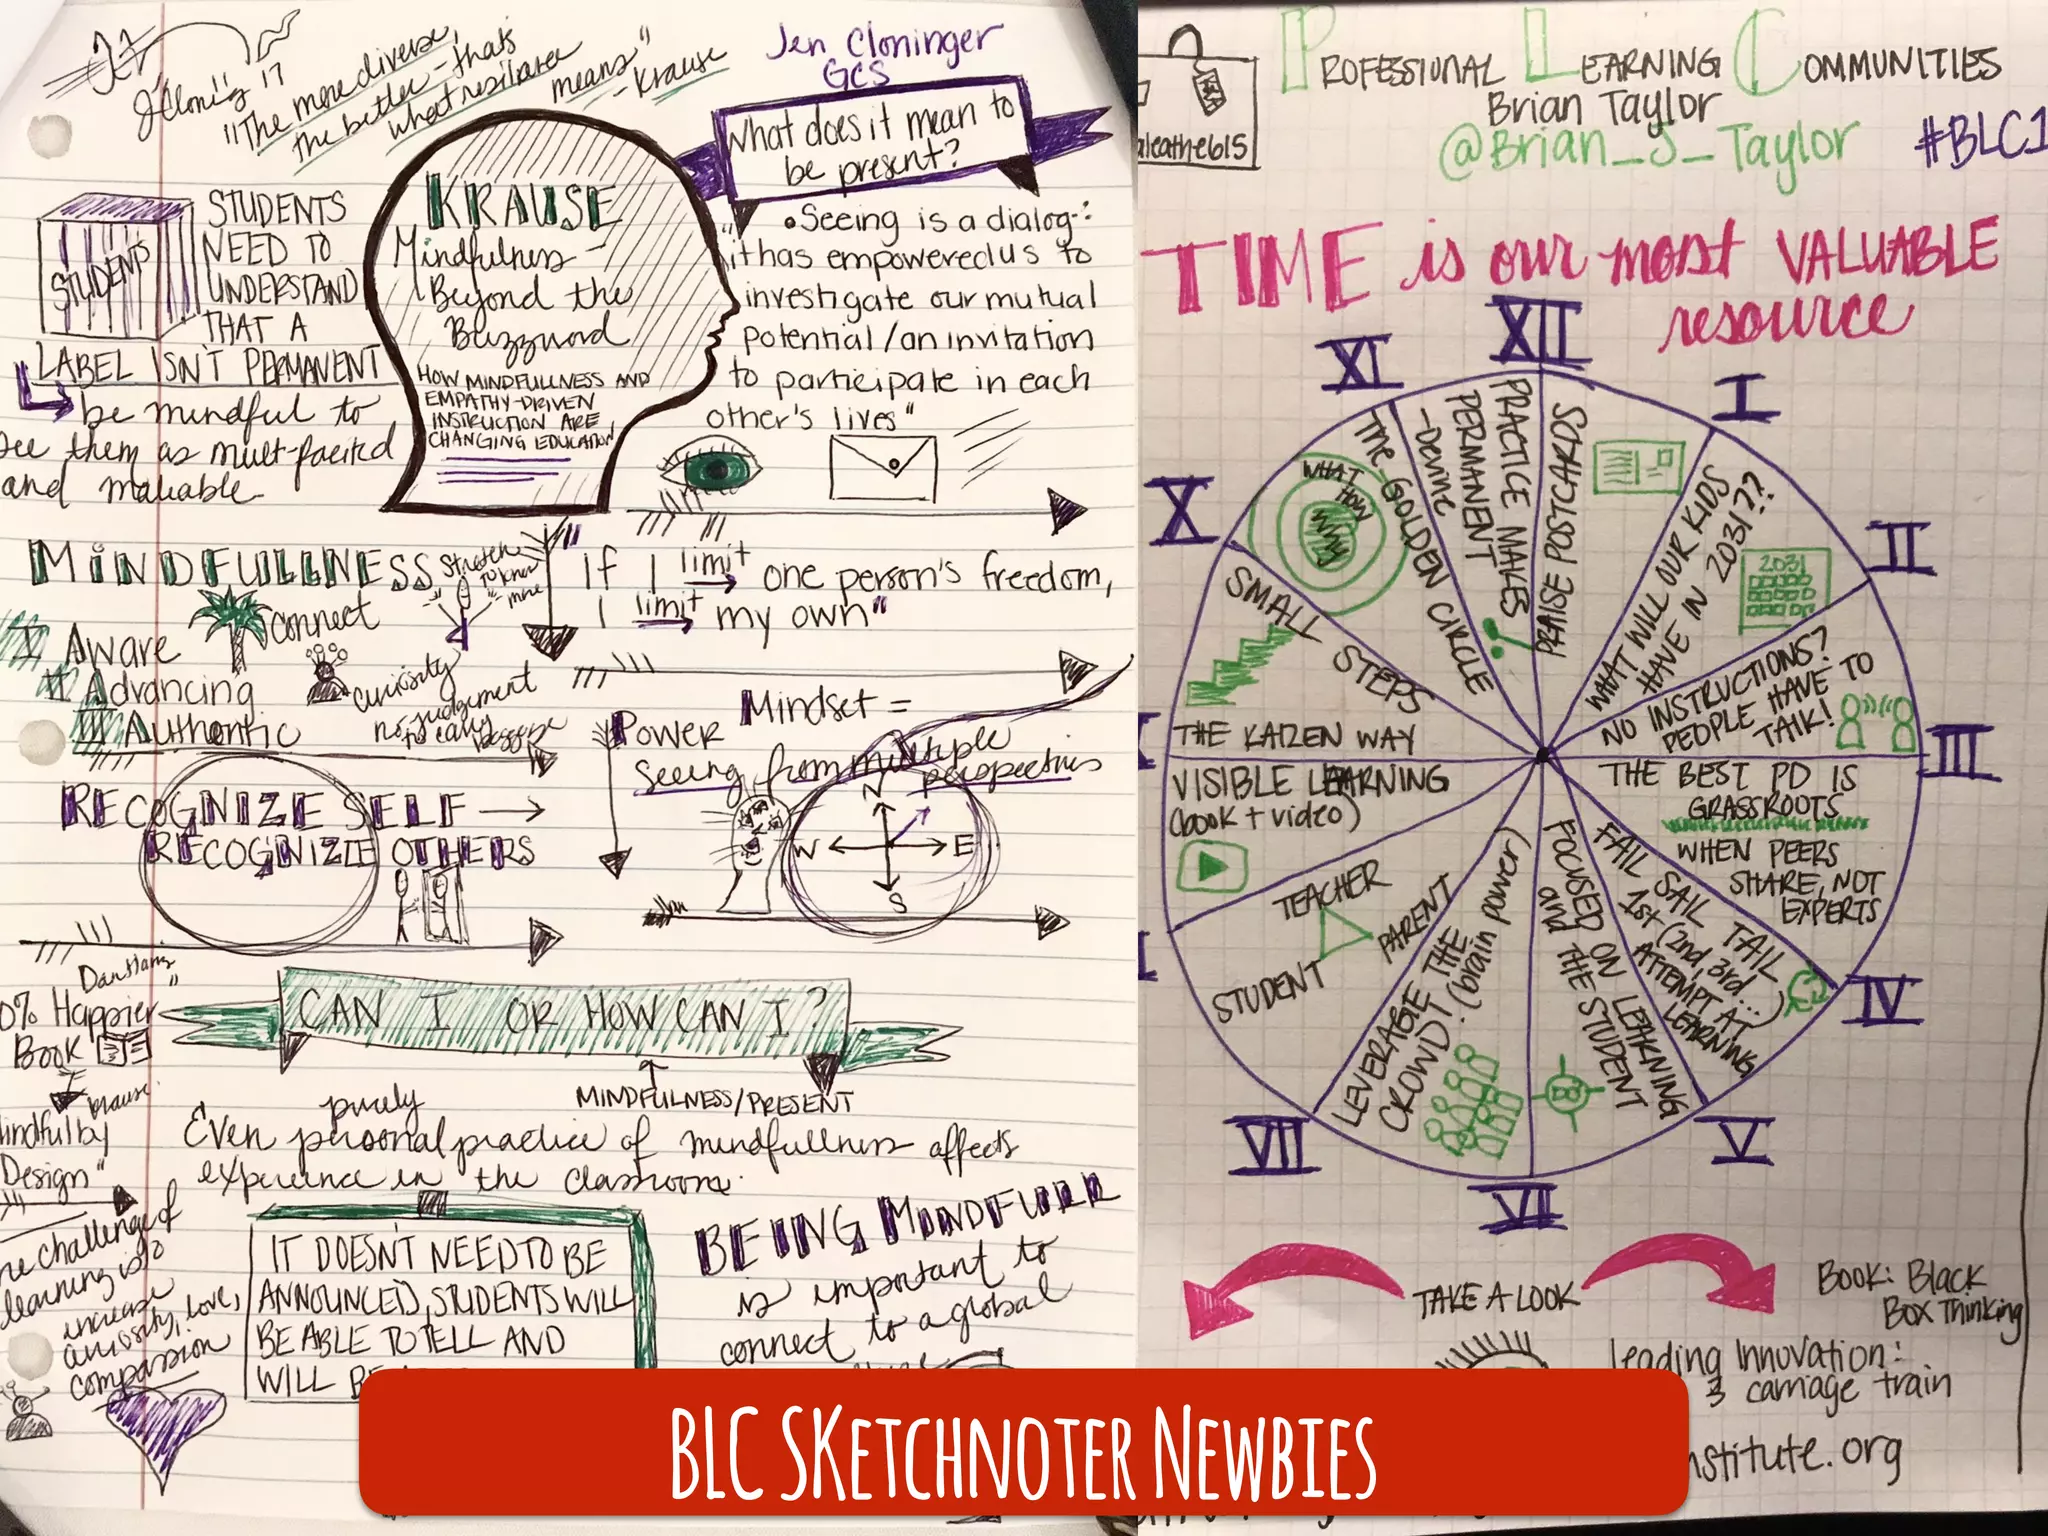 JCloning '17
"The more diverse,
the better - that's
what resilience
means"
- Krause
Jen Cloninger
GCS
What does it mean to
be present?
STUDENTS
STUDENTS
NEED TO
UNDERSTAND
THAT A
LABEL ISN'T PERMANENT
be mindful to
see them as mult-facited
and maluable
KRAUSE
Mindfulness -
Beyond the
Buzzword
HOW MINDFULLNESS AND
EMPATHY-DRIVEN
INSTRUCTION ARE
CHANGING EDUCATION
• Seeing is a dialog-:
"it has empowered us to
investigate our mutual
potential / an invitation
to participate in each
other's lives"
MINDFULLNESS
I Aware
II Advancing
III Authentic
Connect
Stretch
to know
more
curiosity
no judgement
to carry
baggage
"If I limit one person's freedom,
I limit my own"
Power Mindset =
Seeing from multiple
perspectives
N
W E
S
RECOGNIZE SELF →
RECOGNIZE OTHERS
Dan Harris
0% Happier"
Book
Krause
indful by
Design"
CAN I OR HOW CAN I?
MINDFULNESS/PRESENT
purely
Even personal practice of mindfullness affects
experience in the classroom.
he challenge of
learning is to
increase
curiosity, love,
compassion
IT DOESN'T NEED TO BE
ANNOUNCED, STUDENTS WILL
BE ABLE TO TELL AND
WILL
BEING MINDFULL
is important to
connect to a global
PROFESSIONAL LEARNING COMMUNITIES
Brian Taylor
@Brian_J_Taylor
#BLC1
aleathe615
TIME is our most VALUABLE
resource
XII
PRAISE POSTCARDS
I
WHAT WILL OUR KIDS
HAVE IN 2031??
2031
II
NO INSTRUCTIONS?
PEOPLE HAVE TO
TALK!
III
THE BEST PD IS
GRASSROOTS
WHEN PEERS
SHARE, NOT
EXPERTS
IV
FAIL SAIL TAIL
1st (2nd, 3rd...
ATTEMPT AT
LEARNING
V
FOCUSED ON LEARNING
and THE STUDENT
VI
LEVERAGE THE
CROWD! (brain power)
VII
TEACHER
PARENT
STUDENT
VISIBLE LEARNING
(book + video)
THE KAIZEN WAY
SMALL STEPS
X
THE GOLDEN CIRCLE
WHAT
HOW
WHY
XI
PRACTICE MAKES
PERMANENT
-Devine
TAKE A LOOK
BOOK: Black
Box Thinking
Leading Innovation:
3 carriage train
nstitute.org
BLC SKETCHNOTER NEWBIES